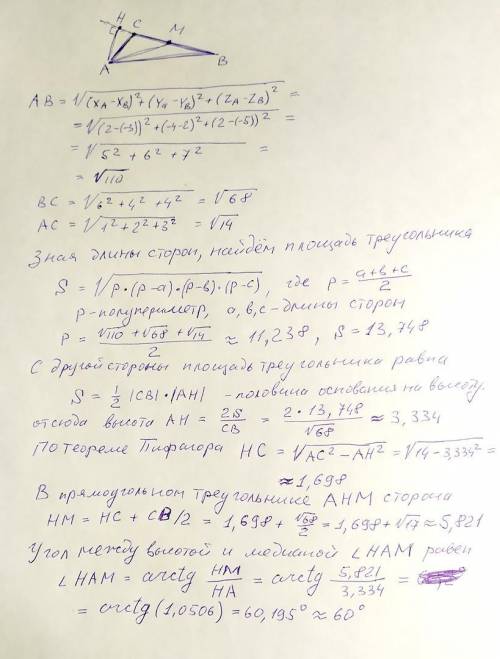 H C M
A B
AB = √((x_A-x_B)²+(y_A-y_B)²+(z_A-z_B)²) =
= √((2-(-3))²+(-4-2)²+(2-(-5))²) =
= √(5² + 6² + 7²) =
= √110
BC = √(6²+4²+4²) = √68
AC = √(1²+2²+3²) = √14
Зная длины сторон, найдём площадь треугольника
S = √(p·(p-a)·(p-b)·(p-c)), где p = (a+b+c)/2
p-полупериметр, a,b,c-длины сторон
P = (√110+√68+√14)/2 ≈ 11,238, S = 13,748
С другой стороны площадь треугольника равна
S = 1/2 |CB|·|AH| - половина основания на высоту.
отсюда высота AH = 2S/CB = 2·13,748/√68 ≈ 3,334
По теореме Пифагора HC = √(AC²-AH²) = √(14-3,334²) =
≈ 1,698
В прямоугольном треугольнике AHM сторона
HM = HC + CB/2 = 1,698 + √68/2 = 1,698+√17 ≈ 5,821
Угол между высотой и медианой ∠HAM равен
∠HAM = arctg HM/HA = arctg 5,821/3,334 =
= arctg(1,0506) = 60,195° ≈ 60°